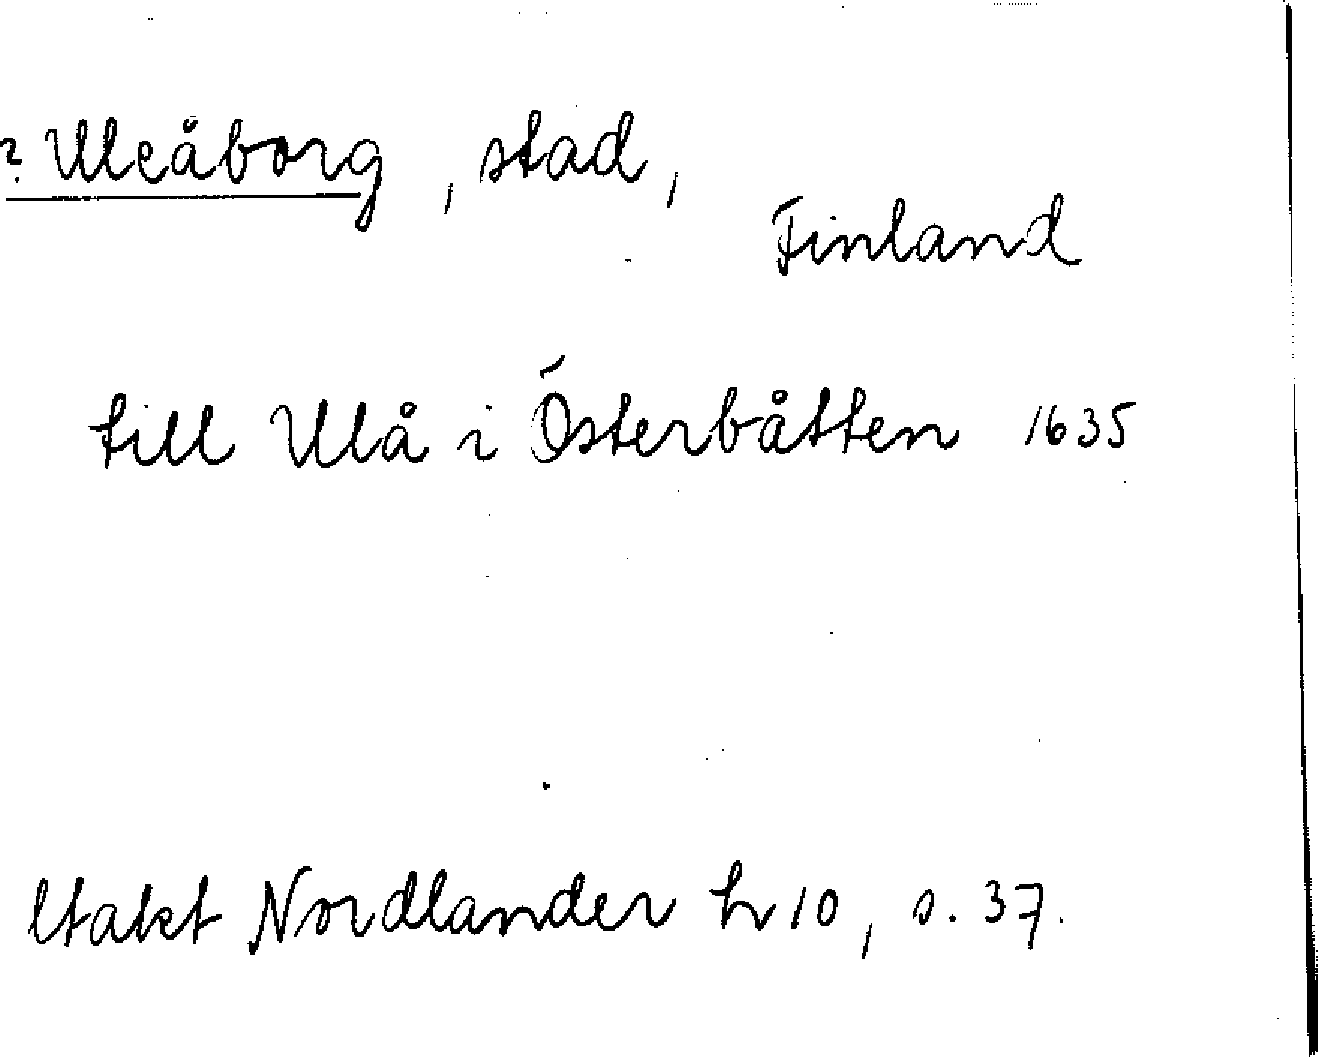 ? Uleåborg, stad,
Finland
till Ulå i Österbåtten 1635
Utakt Nordlander h 10, s. 37.